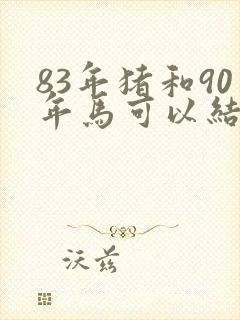 83年猪和90
年馬可以結
沃兹